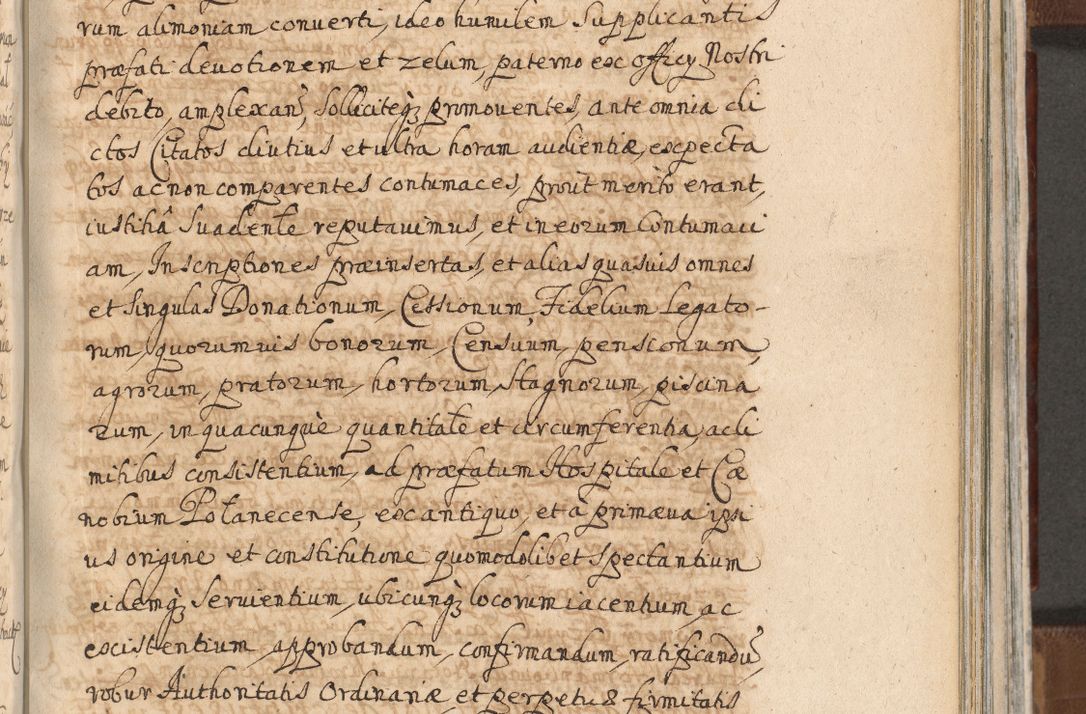 rum alimoniam converti, ideo humilem Supplicantis
præfati devotionem et zelum, paterno ex officy Nostri
debito, amplexan̄, Solliciteq̨ promoventes, ante omnia di
ctos Citatos diutius et ultra horam audientiæ, expecta
tos ac non comparentes contumaces, prout merito erant,
iustitiâ Suadente reputavimus, et in eorum Contumaci
am, Inscriptiones præinsertas, et alias quasvis omnes
et Singulas Donationum, Cessionum, Fidelium Legato-
rum, quorumvis bonorum, Censuum, pensionum,
agrorum, pratorum, hortorum, Stagnorum, piscina
rum, in quacunquè quantitate et circumferentia, ac li
mitibus consistentium, ad præfatum Hospitale et Cæ
nobium Polanecense, ex antiquo, et à primæva ipsi
us origine et constitutione quomodolibet Spectantium
eidemq̨ Servientium, ubicunq̨ locorum iacentium, ac
existentium, approbandum, confirmandum, ratificandū,
robur Authoritatis Ordinariæ et perpetuæ firmitatis